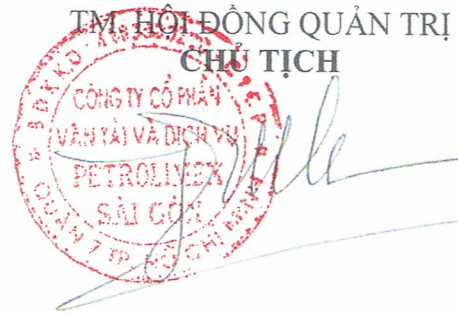 TM. HỘI ĐỒNG QUẢN TRỊ
CHỦ TỊCH
CÔNG TY CỔ PHẦN
VẬN TẢI VÀ DỊCH VỤ
PETROLIMEX
SÀI GÒN
QUẬN 7 TP. HỒ CHÍ MINH